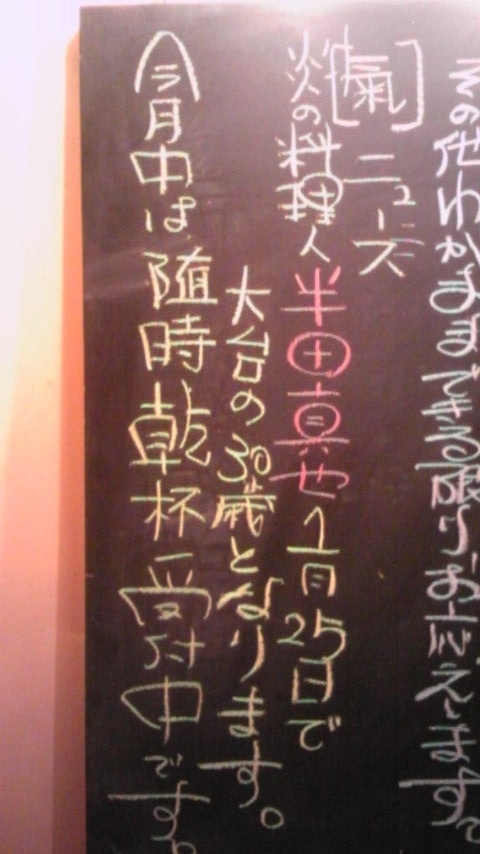 その他わがままできる限りお応えします。
[氣]ニュース
炎の料理人 半田真也 1月25日で
大台の30歳となります。
今月中は随時乾杯受付中です。